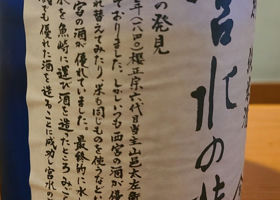 純米酒
宮水の
の発見
年(一八四〇)櫻正宗六代目当主山邑太左衛
ておりました。しかしいつも西宮の酒が優
れ替えてみたり、米も同じものを使うなどい
宮の酒が優れていました。最終的に水
水を魚崎に運び酒を造ったところみごと
も優れた酒を造ることに成功し宮水の